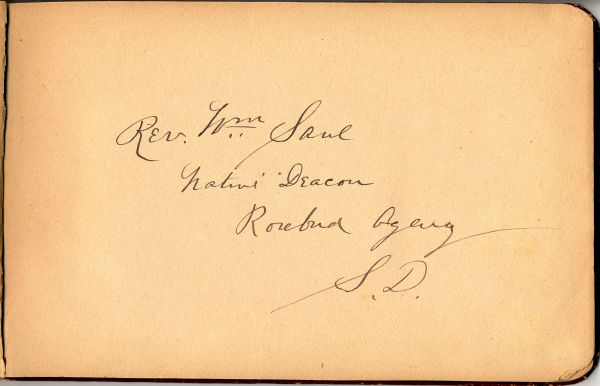 Rev. Wm Saul
Native Deacon
Rosebud Agency
S.D.